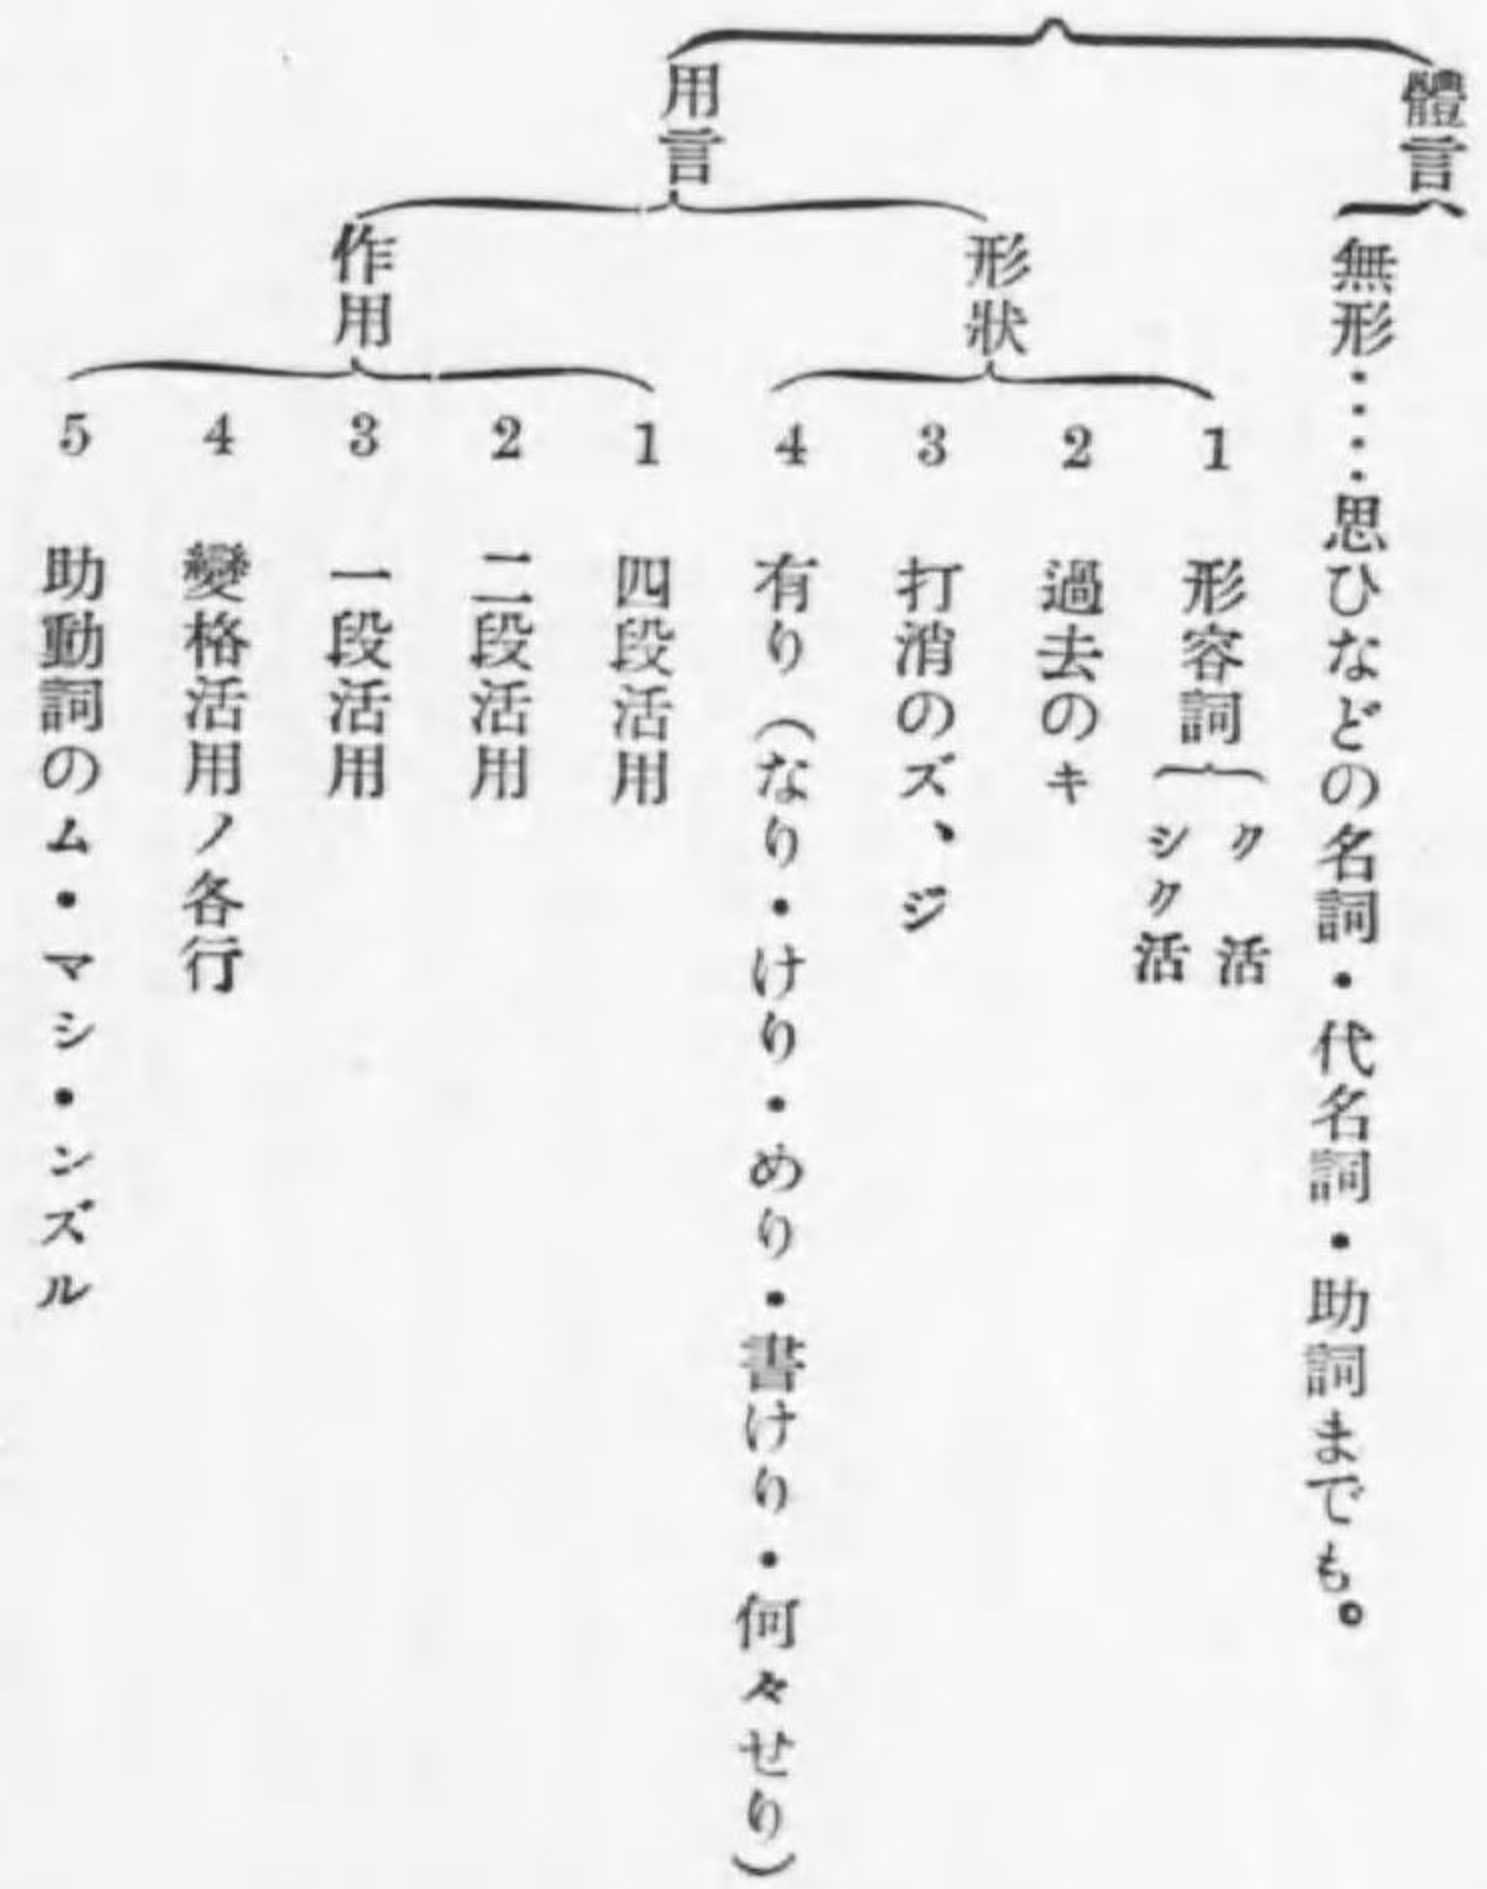 體言
無形‥‥思ひなどの名詞・代名詞・助詞までも。
用言
形狀
1 形容詞
ク活
シク活
2 過去のキ
3 打消のズ、ジ
4 有り(なり・けり・めり・書けり・何々せり)
作用
1 四段活用
2 二段活用
3 一段活用
4 變格活用ノ各行
5 助動詞のム・マシ・ンズル